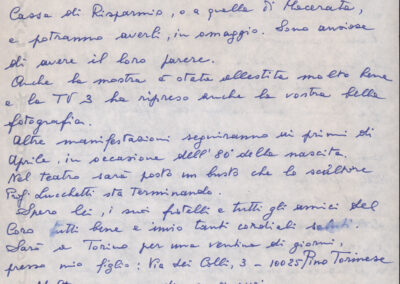 Cassa di Risparmio, o a quella di Macerata,
e potranno averli, in omaggio. Sono ansiosa
di avere il loro parere.
Anche la mostra è stata allestita molto bene
e la TV 3 ha ripreso anche la vostra bella
fotografia.
Altre manifestazioni seguiranno ai primi di
Aprile, in occasione dell'80° della nascita.
Nel teatro sarà posto un busto che lo scultore
Prof. Lucchetti sta terminando.
Spero lei, i suoi fratelli e tutti gli amici del
Coro tutti bene e invio tanti cordiali saluti.
Sarò a Torino per una ventina di giorni,
presso mio figlio: Via dei Colli, 3 - 10025 Pino Torinese